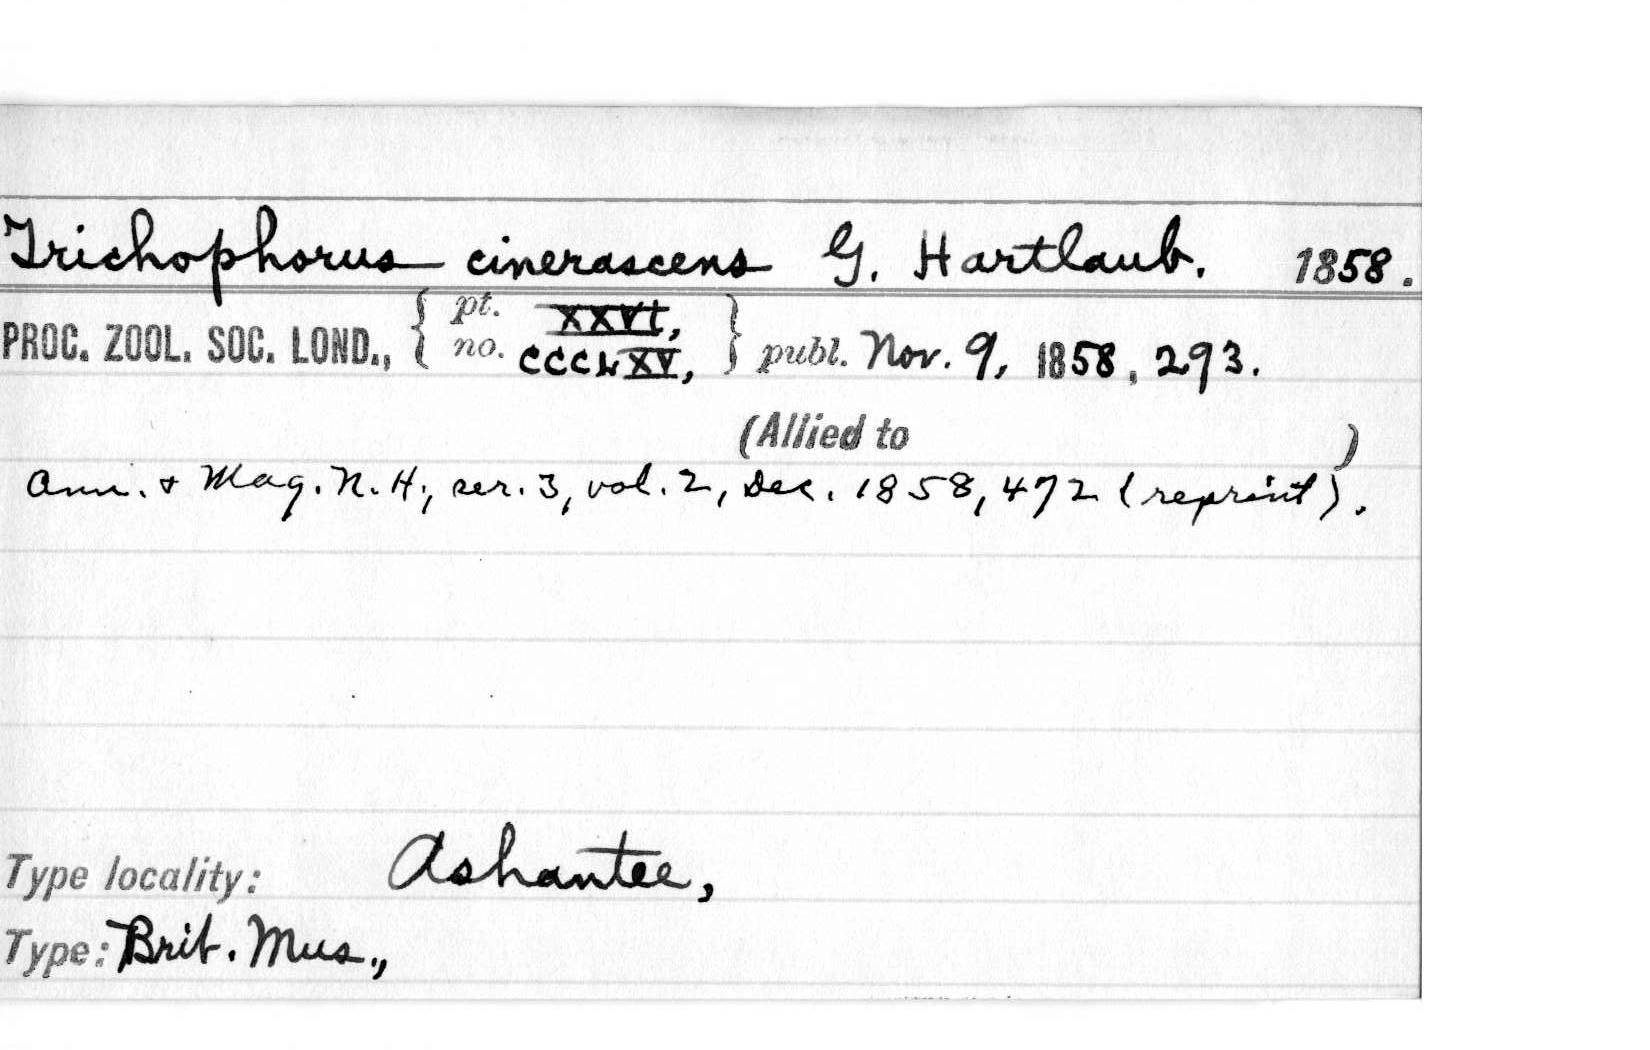 Trichophorus cinerascens G. Hartlaub. 1858.
PROC. ZOOL. SOC. LOND., { pt. XXVI, no. CCCLXV, } publ. Nov. 9, 1858, 293.
(Allied to )
Ann. & Mag. N. H., ser. 3, vol. 2, Dec. 1858, 472 (reprint).
Type locality: Ashantee,
Type: Brit. Mus.,